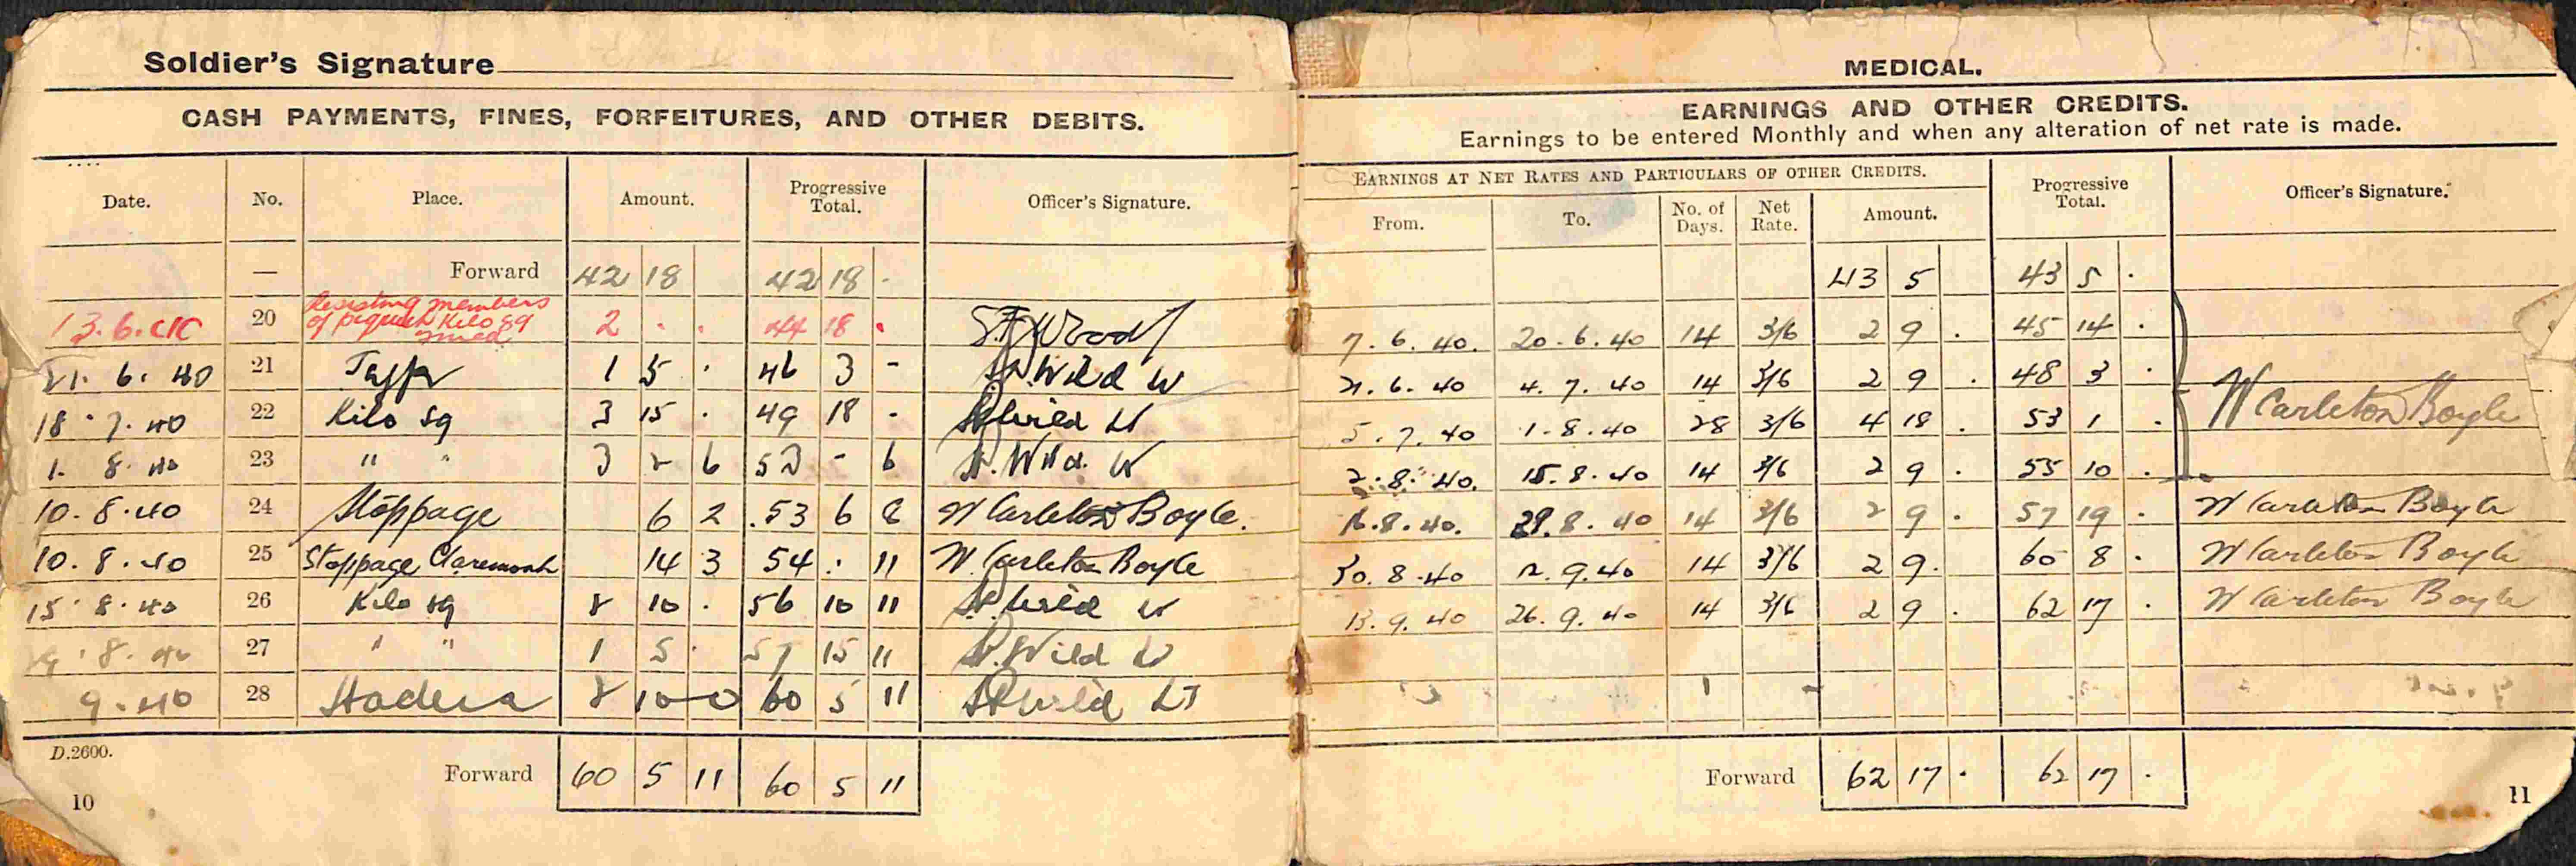 Soldier's Signature
CASH PAYMENTS, FINES, FORFEITURES, AND OTHER DEBITS.
Date. No. Place. Amount. Progressive Total. Officer's Signature.
— Forward 42 18 42 18 -
13.6.40 20 Resisting members of piquet Kilo 89 2 . . 44 18 .
21. 6. 40 21 Jaffa 1 5 . 46 3 - Wild Lt
18.7.40 22 Kilo 89 3 15 . 49 18 - Wild Lt
1. 8. 40 23 " " 3 2 6 53 - 6 Wild Lt
10.8.40 24 Stoppage 6 2 53 6 8 W Carleton Boyle.
10.8.40 25 Stoppage Claremont 14 3 54 . 11 W. Carleton Boyle
15.8.40 26 Kilo 89 2 10 . 56 10 11 Wild Lt
29.8.40 27 " " 1 5 . 57 15 11 Wild Lt
9.40 28 Hadera 2 10 0 60 5 11 Wild Lt
D.2600.
Forward 60 5 11 60 5 11
10
MEDICAL.
EARNINGS AND OTHER CREDITS.
Earnings to be entered Monthly and when any alteration of net rate is made.
EARNINGS AT NET RATES AND PARTICULARS OF OTHER CREDITS. Progressive Total. Officer's Signature.
From. To. No. of Days. Net Rate. Amount.
43 5 43 5 .
7.6.40. 20.6.40 14 3/6 2 9 . 45 14 .
21.6.40 4.7.40 14 3/6 2 9 . 48 3 .
5.7.40 1.8.40 28 3/6 4 18 . 53 1 . W Carleton Boyle
2.8.40. 15.8.40 14 3/6 2 9 . 55 10 .
16.8.40. 29.8.40 14 3/6 2 9 . 57 19 . W Carleton Boyle
30.8.40 12.9.40 14 3/6 2 9 . 60 8 . W Carleton Boyle
13.9.40 26.9.40 14 3/6 2 9 . 62 17 . W Carleton Boyle
Forward 62 17 . 62 17 .
11